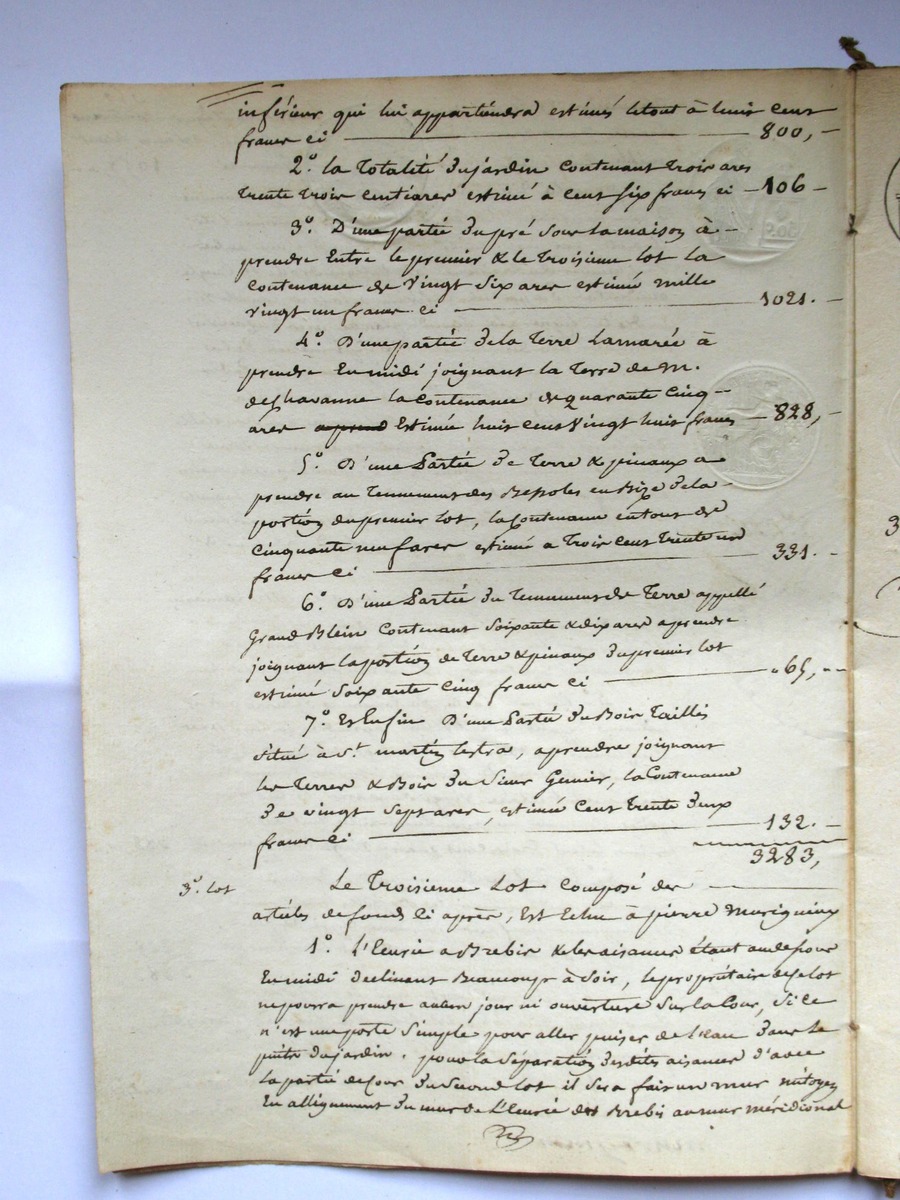 inférieur qui lui appartiendra estimés letout à huit cent
francs ci 800,
2.° la Totalité du jardin contenant trois ares
trente trois centiares estimé à cent six francs ci 106
3.° D'une partie du pré sous la maison à
prendre Entre le premier & le Troisieme lot la
contenance de vingt six ares estimée mille
vingt un francs ci 1021.
4.° D'une partie de la Terre Lamarée à
prendre En midi joignant la Terre de M.
la contenance de quarante cinq
ares Estimée huit cent vingt huit francs 828,
5.° D'une Partie de Terre & pinaux a
prendre au Tennement des en Bize de la
portion du premier lot, la Contenance en tout de
Cinquante neuf ares estimée a Trois cent trente un
francs ci 331.
6.° D'une Partie du Tennement de Terre appellé
Grand Blein Contenant soixante & dix ares a prendre
joignant la portion de Terre & pinaux du premier lot
estimée soixante cinq francs ci 65,
7.° Et Enfin D'une Partie du Bois Taillis
situé à St. martin lestra, a prendre joignant
les Terres & Bois du Sieur la Contenance
de vingt sept ares, estimée Cent Trente deux
francs ci 132.
3283,
3.° lot
Le Troisieme Lot Composé des
articles de fonds ci après, Est Echu à pierre
1.° L'Ecurie a Brebis & les aisances étant au devant
En midi declinant Beaucoup à Soir, le propriétaire de ce lot
ne pourra prendre aucun jour ni ouverture sur la Cour, si ce
n'est une porte simple pour aller puiser de l'eau dans le
puits du jardin. pour la séparation desdites aisances d'avec
la partie de cour du second lot il sera fait un mur mitoyen
En allignement du mur de L'Ecurie des Brebis au mur méridional